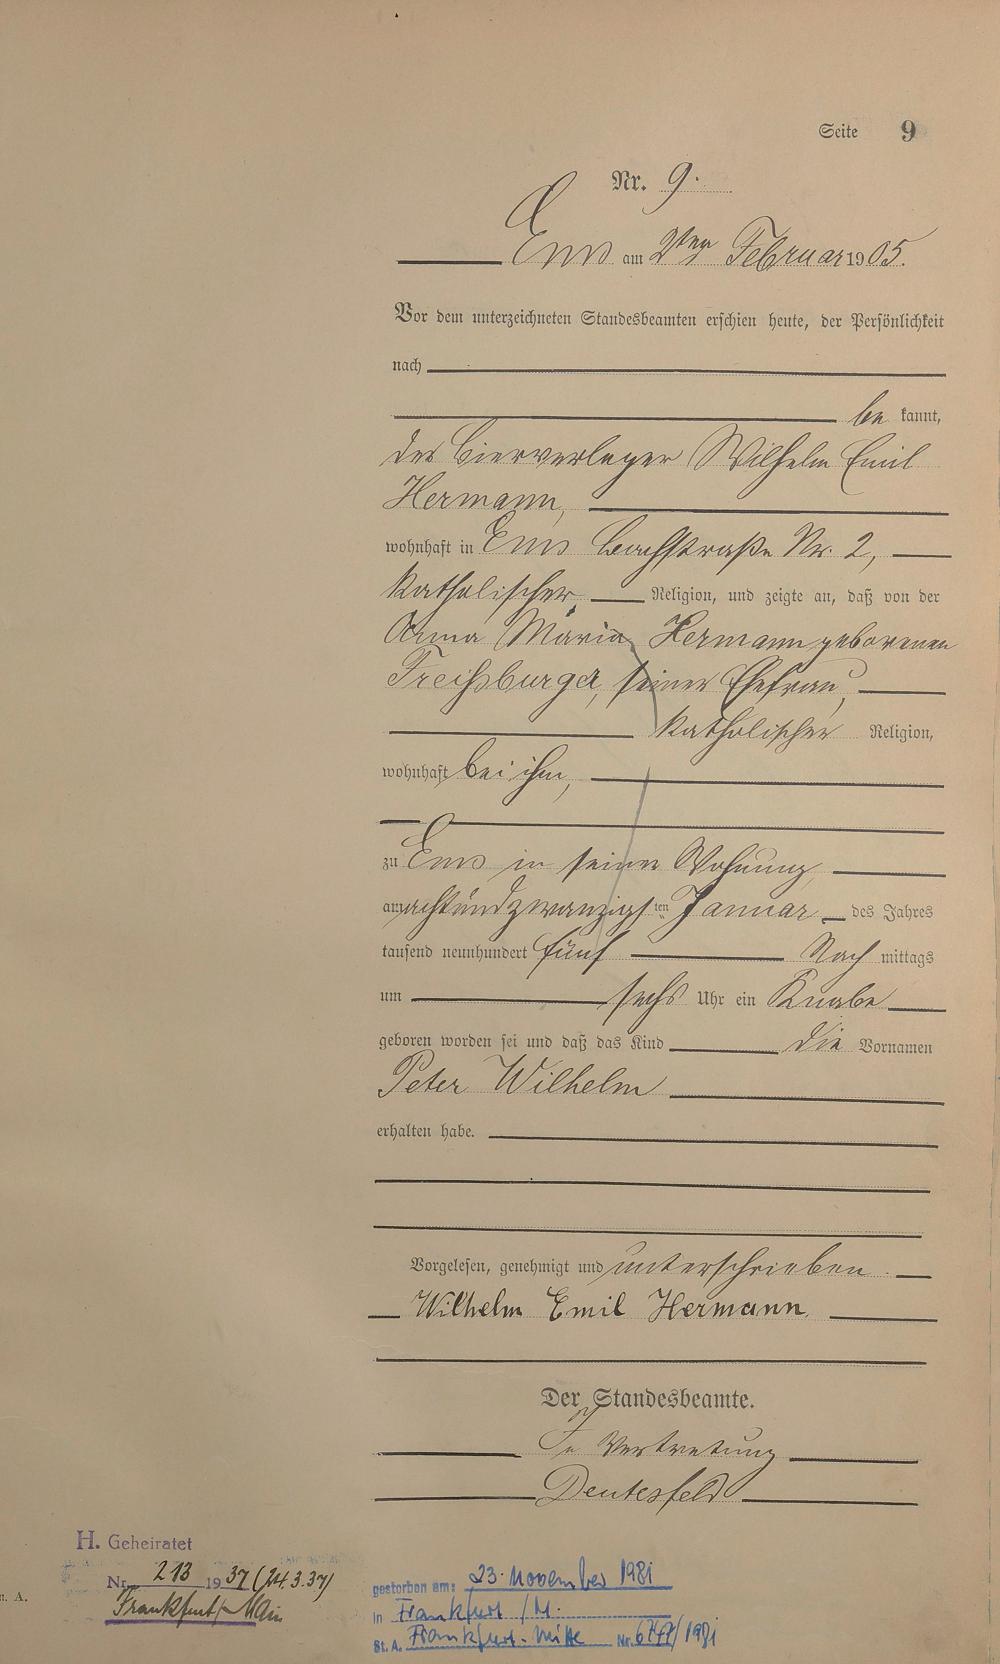 Seite 9
Nr. 9.
Ems am 2ten Februar 1905.
Vor dem unterzeichneten Standesbeamten erschien heute, der Persönlichkeit
nach
be kannt,
der Bierverleger Wilhelm Emil
Hermann,
wohnhaft in Ems Bachstraße Nr. 2,
katholischer Religion, und zeigte an, daß von der
Anna Maria Hermann geborenen
Freißburger, seiner Ehefrau,
katholischer Religion,
wohnhaft bei ihm,
zu Ems in seiner Wohnung
am achtundzwanzigsten Januar des Jahres
tausend neunhundert fünf Nach mittags
um sechs Uhr ein Knabe
geboren worden sei und daß das Kind die Vornamen
Peter Wilhelm
erhalten habe.
Vorgelesen, genehmigt und unterschrieben.
Wilhelm Emil Hermann.
Der Standesbeamte.
In Vertretung
H. Geheiratet
Nr. 213 1937 (24.3.37)
Frankfurt/Main
n. A.
gestorben am: 23. November 1981
in Frankfurt /M.
St. A. Frankfurt-Mitte Nr. /1981